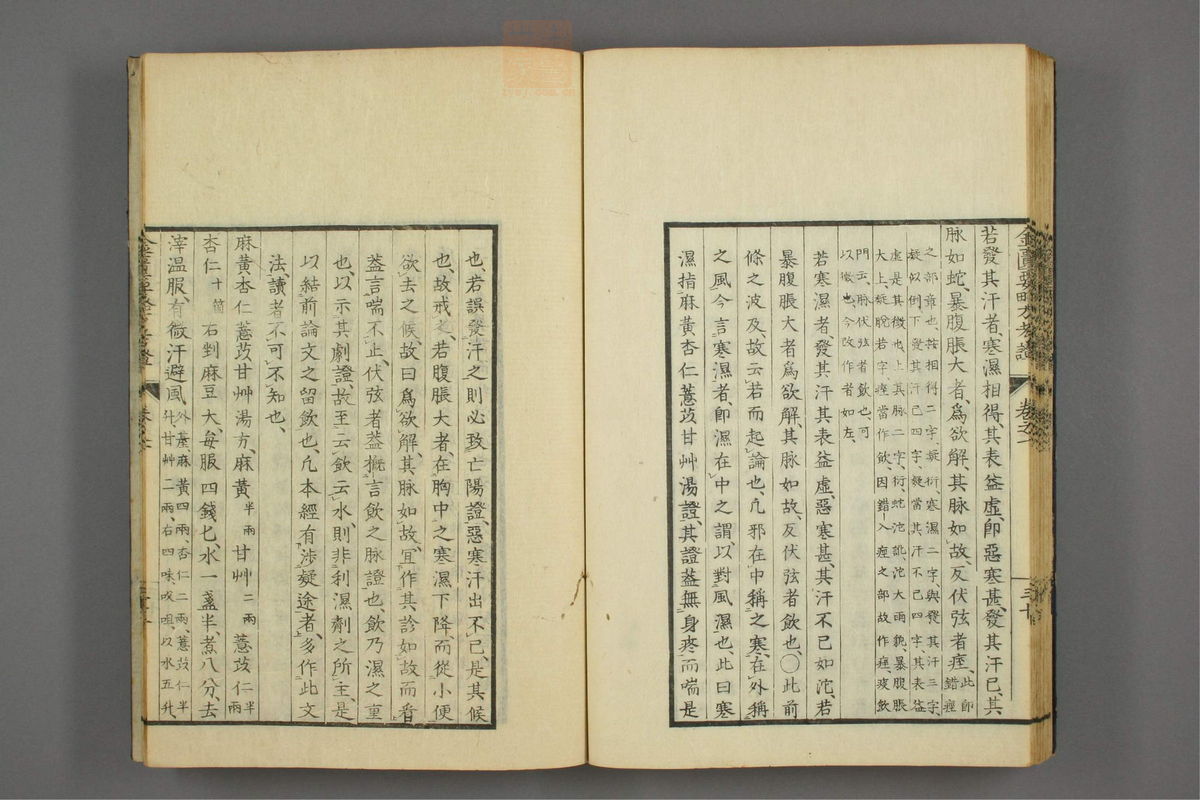 若發其汗者、寒濕相得、其表益虛、卽惡寒甚、發其汗已、其
脉如蛇、暴腹脹大者、爲欲解、其脉如故、反伏弦者痙、此卽錯痙
之部簡也、按相得二字、疑衍、寒濕二字、與發其汗三字
疑似倒下、發其汗已四字、疑當其汗不已四字、其表益
虛是其徵也、上其脉二字、衍、蛇沱訛、沱大雨貌、暴腹脹
大上、疑脫若字、痙當作飲、因錯入痙之部故作痙、痰飲
門云、脉伏弦者飲也、可
以徵也、今改作者如左、
若寒濕者、發其汗、其表益虛、惡寒甚、其汗不已如沱、若
暴腹脹大者爲欲解、其脉如故、反伏弦者飲也、〇此前
條之波及、故云若而起論也、凡邪在中稱之寒、在外稱
之風、今言寒濕者、卽濕在中之謂、以對風濕也、此曰寒
濕、指麻黃杏仁薏苡甘艸湯證、其證葢無身疼而喘是
金匱要略方考證　卷之一
也、若誤發汗之則必致亡陽證、惡寒汗出不已、是其候
也、故戒之、若腹脹大者、在胸中之寒濕下降、而從小便
欲去之候、故曰爲欲解、其脉如故、宜作其診如故而看
葢言喘不止、伏弦者葢概言飲之脉證也、飲乃濕之重
也、以示其劇證、故至云飲云水、則非利濕劑之所主、是
以結前論文之留飲也、凡本經有涉疑途者、多作此文
法、讀者不可不知也、
麻黃杏仁薏苡甘艸湯方、麻黃半兩甘艸二兩薏苡仁半兩
杏仁十箇右剉麻豆大、每服四錢匕、水一盞半、煮八分、去
滓溫服、有微汗避風、外臺、麻黃四兩、杏仁二兩、薏苡仁半
升、甘艸二兩、右四味㕮咀、以水五升、
金匱要略方考證　卷之一